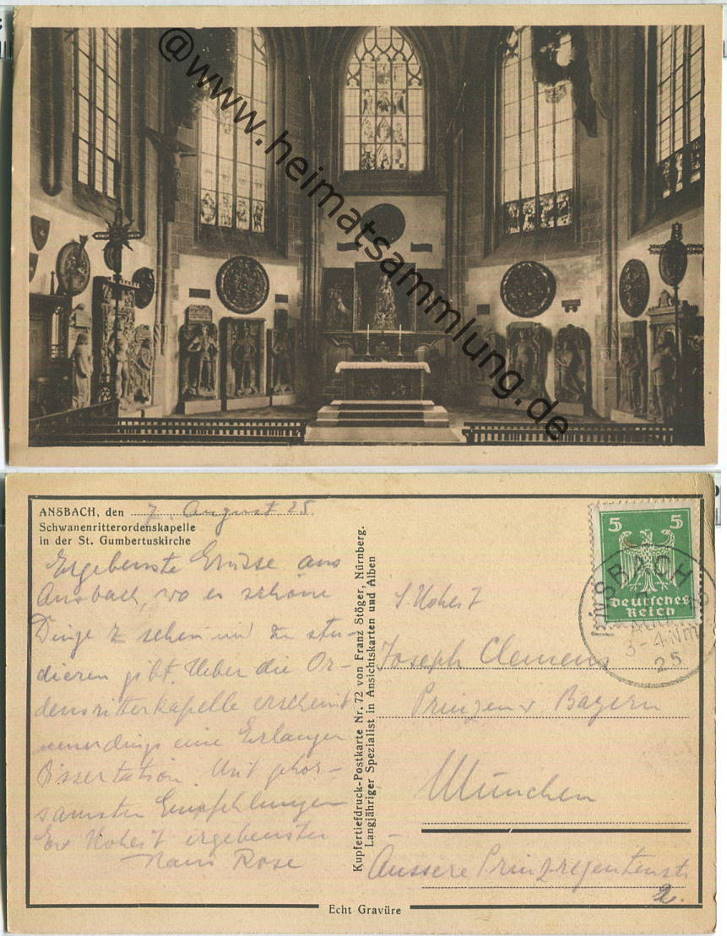 @www.heimatsammlung.de
ANSBACH, den 7. August 25.
Schwanenritterordenskapelle
in der St. Gumbertuskirche
Ergebenste Grüsse aus
Ansbach, wo es schöne
Dinge z. sehen und zu stu-
dieren gibt. Ueber die Or-
densritterkapelle erscheint
neuerdings eine Erlanger
Dissertation. Mit gehor-
samsten Empfehlungen
Ew Hoheit ergebenster
Hans Rose
Kupfertiefdruck-Postkarte Nr. 72 von Franz Stöger, Nürnberg.
Langjähriger Spezialist in Ansichtskarten und Alben
5 5
Deutsches
Reich
ANSBACH
3-4 Nm
25
S. Hoheit
Joseph Clemens
Prinzen v Bayern
München
Äussere Prinzregentenstr
2.
Echt Gravüre